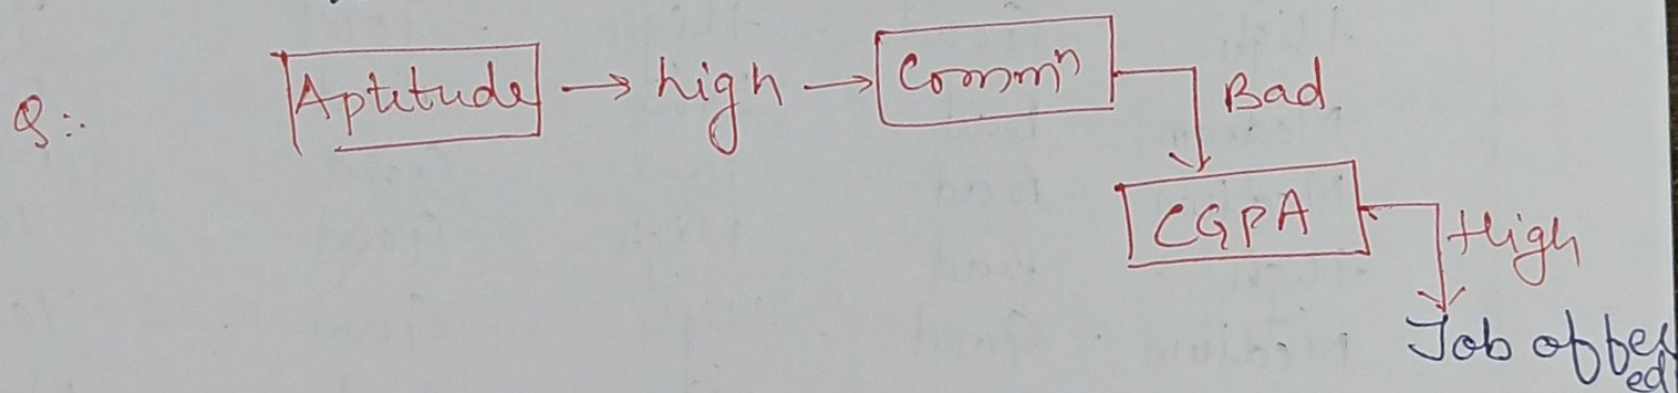 Q:- Aptitude → high → Commⁿ Bad
CGPA High
Job offer
ed